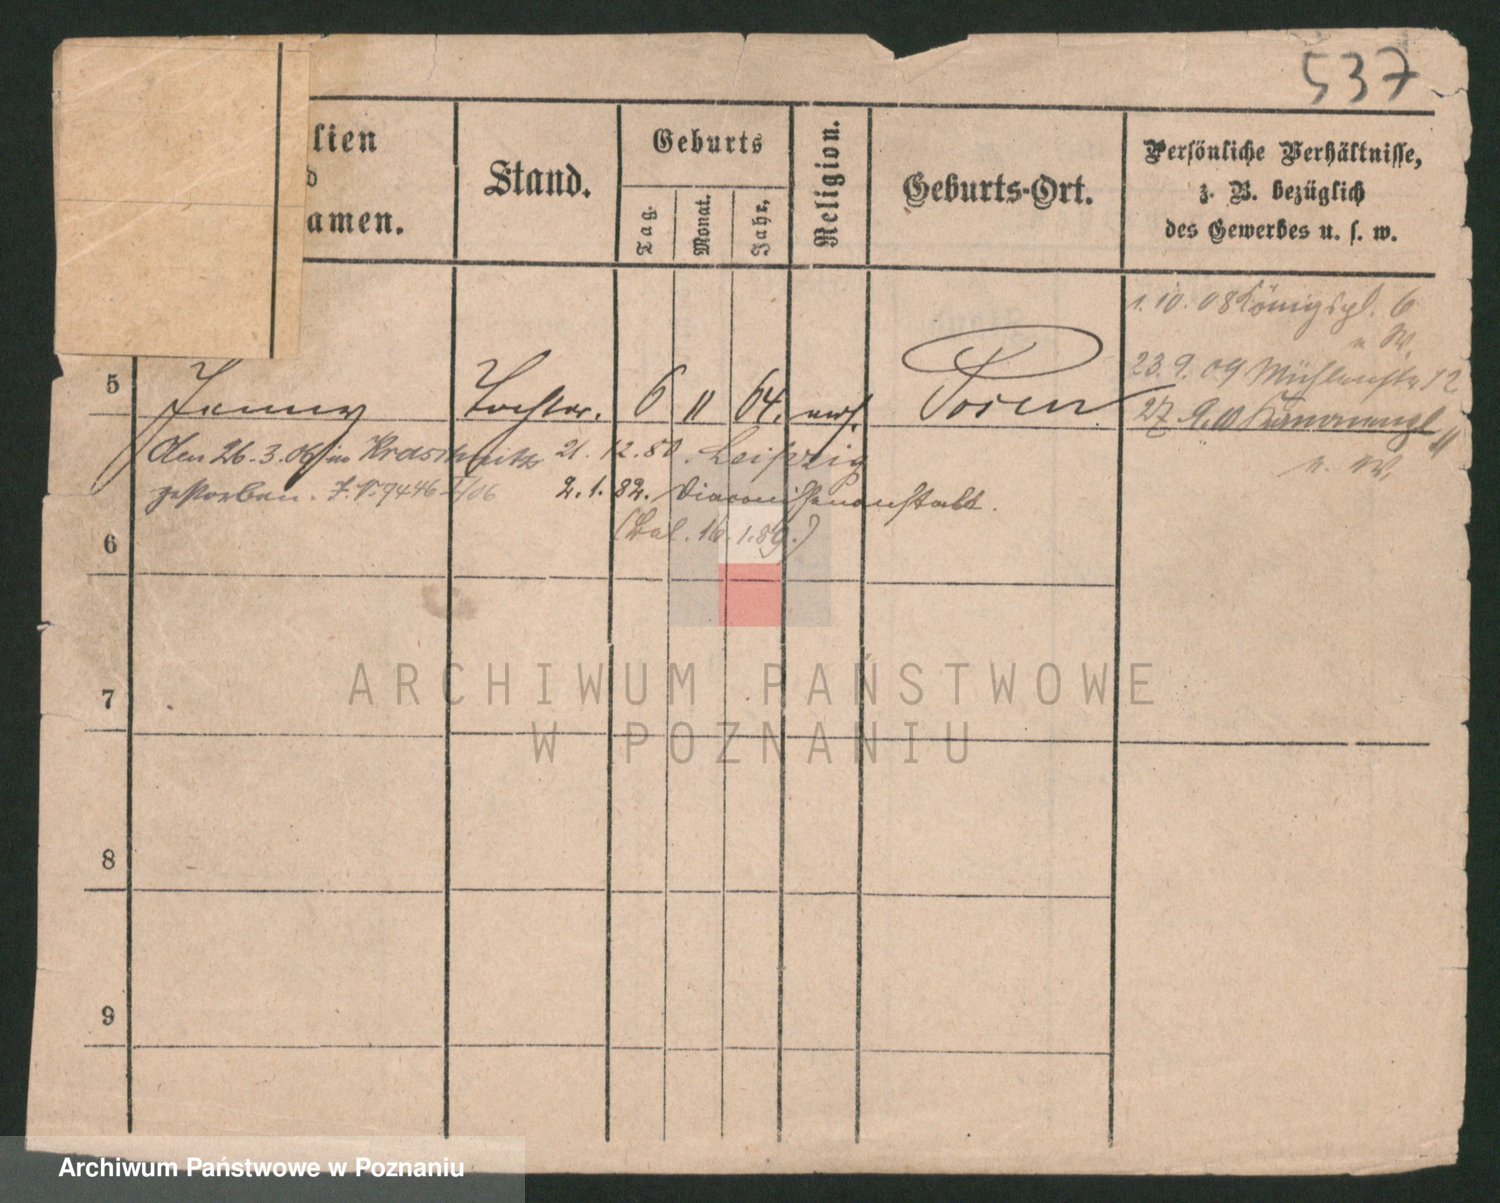 537
lien
d
amen.
Stand.
Geburts
Tag.
Monat.
Jahr.
Religion.
Geburts-Ort.
Persönliche Verhältnisse,
z. B. bezüglich
des Gewerbes u. s. w.
1. 10. 08 Königspl. 6
u W.
23. 9. 09 Mühlenstr 12
5 Jenny Tochter. 6 11 64. Posen
27
u. W.
den 26. 3. 06 in Kraschnitz 21. 12. 80. Leipzig
gestorben. J. N. 7446 I/06 2. 1. 82. Diaconissenanstalt.
16. 1. 89.)
6
7
8
9
ARCHIWUM PAŃSTWOWE
W POZNANIU
Archiwum Państwowe w Poznaniu